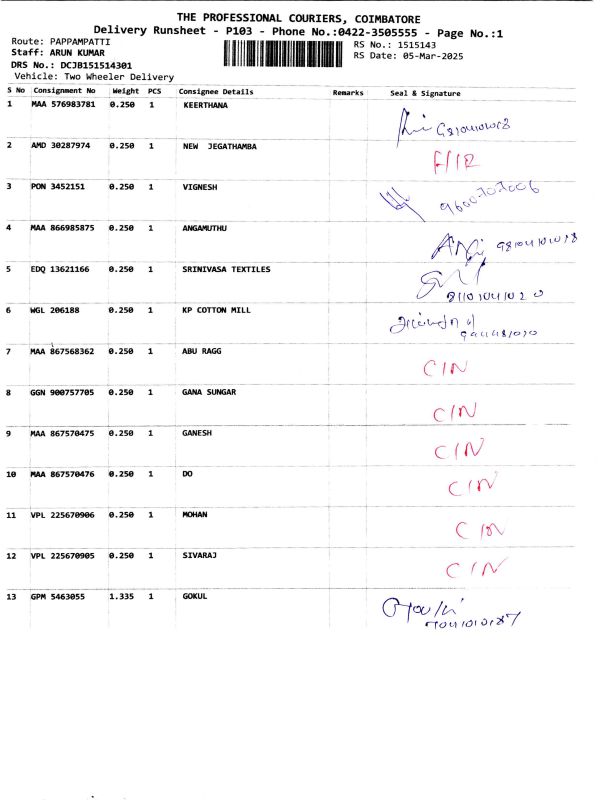 THE PROFESSIONAL COURIERS, COIMBATORE
Delivery Runsheet - P103 - Phone No.:0422-3505555 - Page No.:1
Route: PAPPAMPATTI
Staff: ARUN KUMAR
DRS No.: DCJB151514301
Vehicle: Two Wheeler Delivery
RS No.: 1515143
RS Date: 05-Mar-2025
S No Consignment No Weight PCS Consignee Details Remarks Seal & Signature
1 MAA 576983781 0.250 1 KEERTHANA
2 AMD 30287974 0.250 1 NEW JEGATHAMBA F/IR
3 PON 3452151 0.250 1 VIGNESH
4 MAA 866985875 0.250 1 ANGAMUTHU
5 EDQ 13621166 0.250 1 SRINIVASA TEXTILES
6 WGL 206188 0.250 1 KP COTTON MILL
7 MAA 867568362 0.250 1 ABU RAGG C/N
8 GGN 900757705 0.250 1 GANA SUNGAR C/N
9 MAA 867570475 0.250 1 GANESH C/N
10 MAA 867570476 0.250 1 DO C/N
11 VPL 225670906 0.250 1 MOHAN C/N
12 VPL 225670905 0.250 1 SIVARAJ C/N
13 GPM 5463055 1.335 1 GOKUL